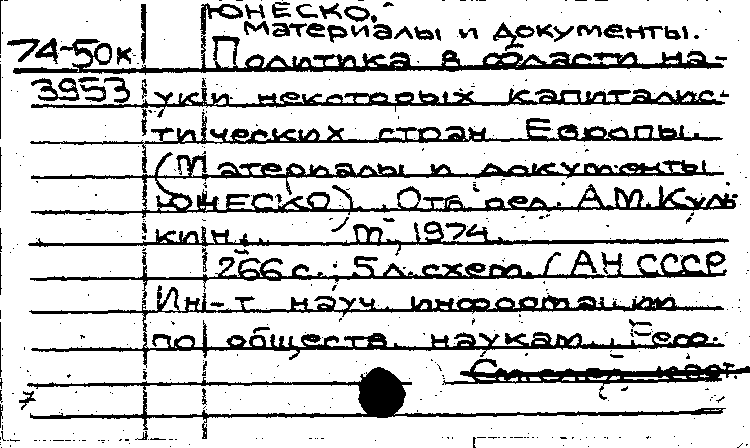 ЮНЕСКО.
Материалы и документы.
74-50к Политика в области на-
3953 уки некоторых капиталис-
тических стран Европы.
(Материалы и документы
ЮНЕСКО). Отв. ред. А.М.Куль-
кин. м., 1974.
266 с.; 5 л. схем. (АН СССР
Ин-т науч. информации
по обществ. наукам. Реф.
См. след. карт.